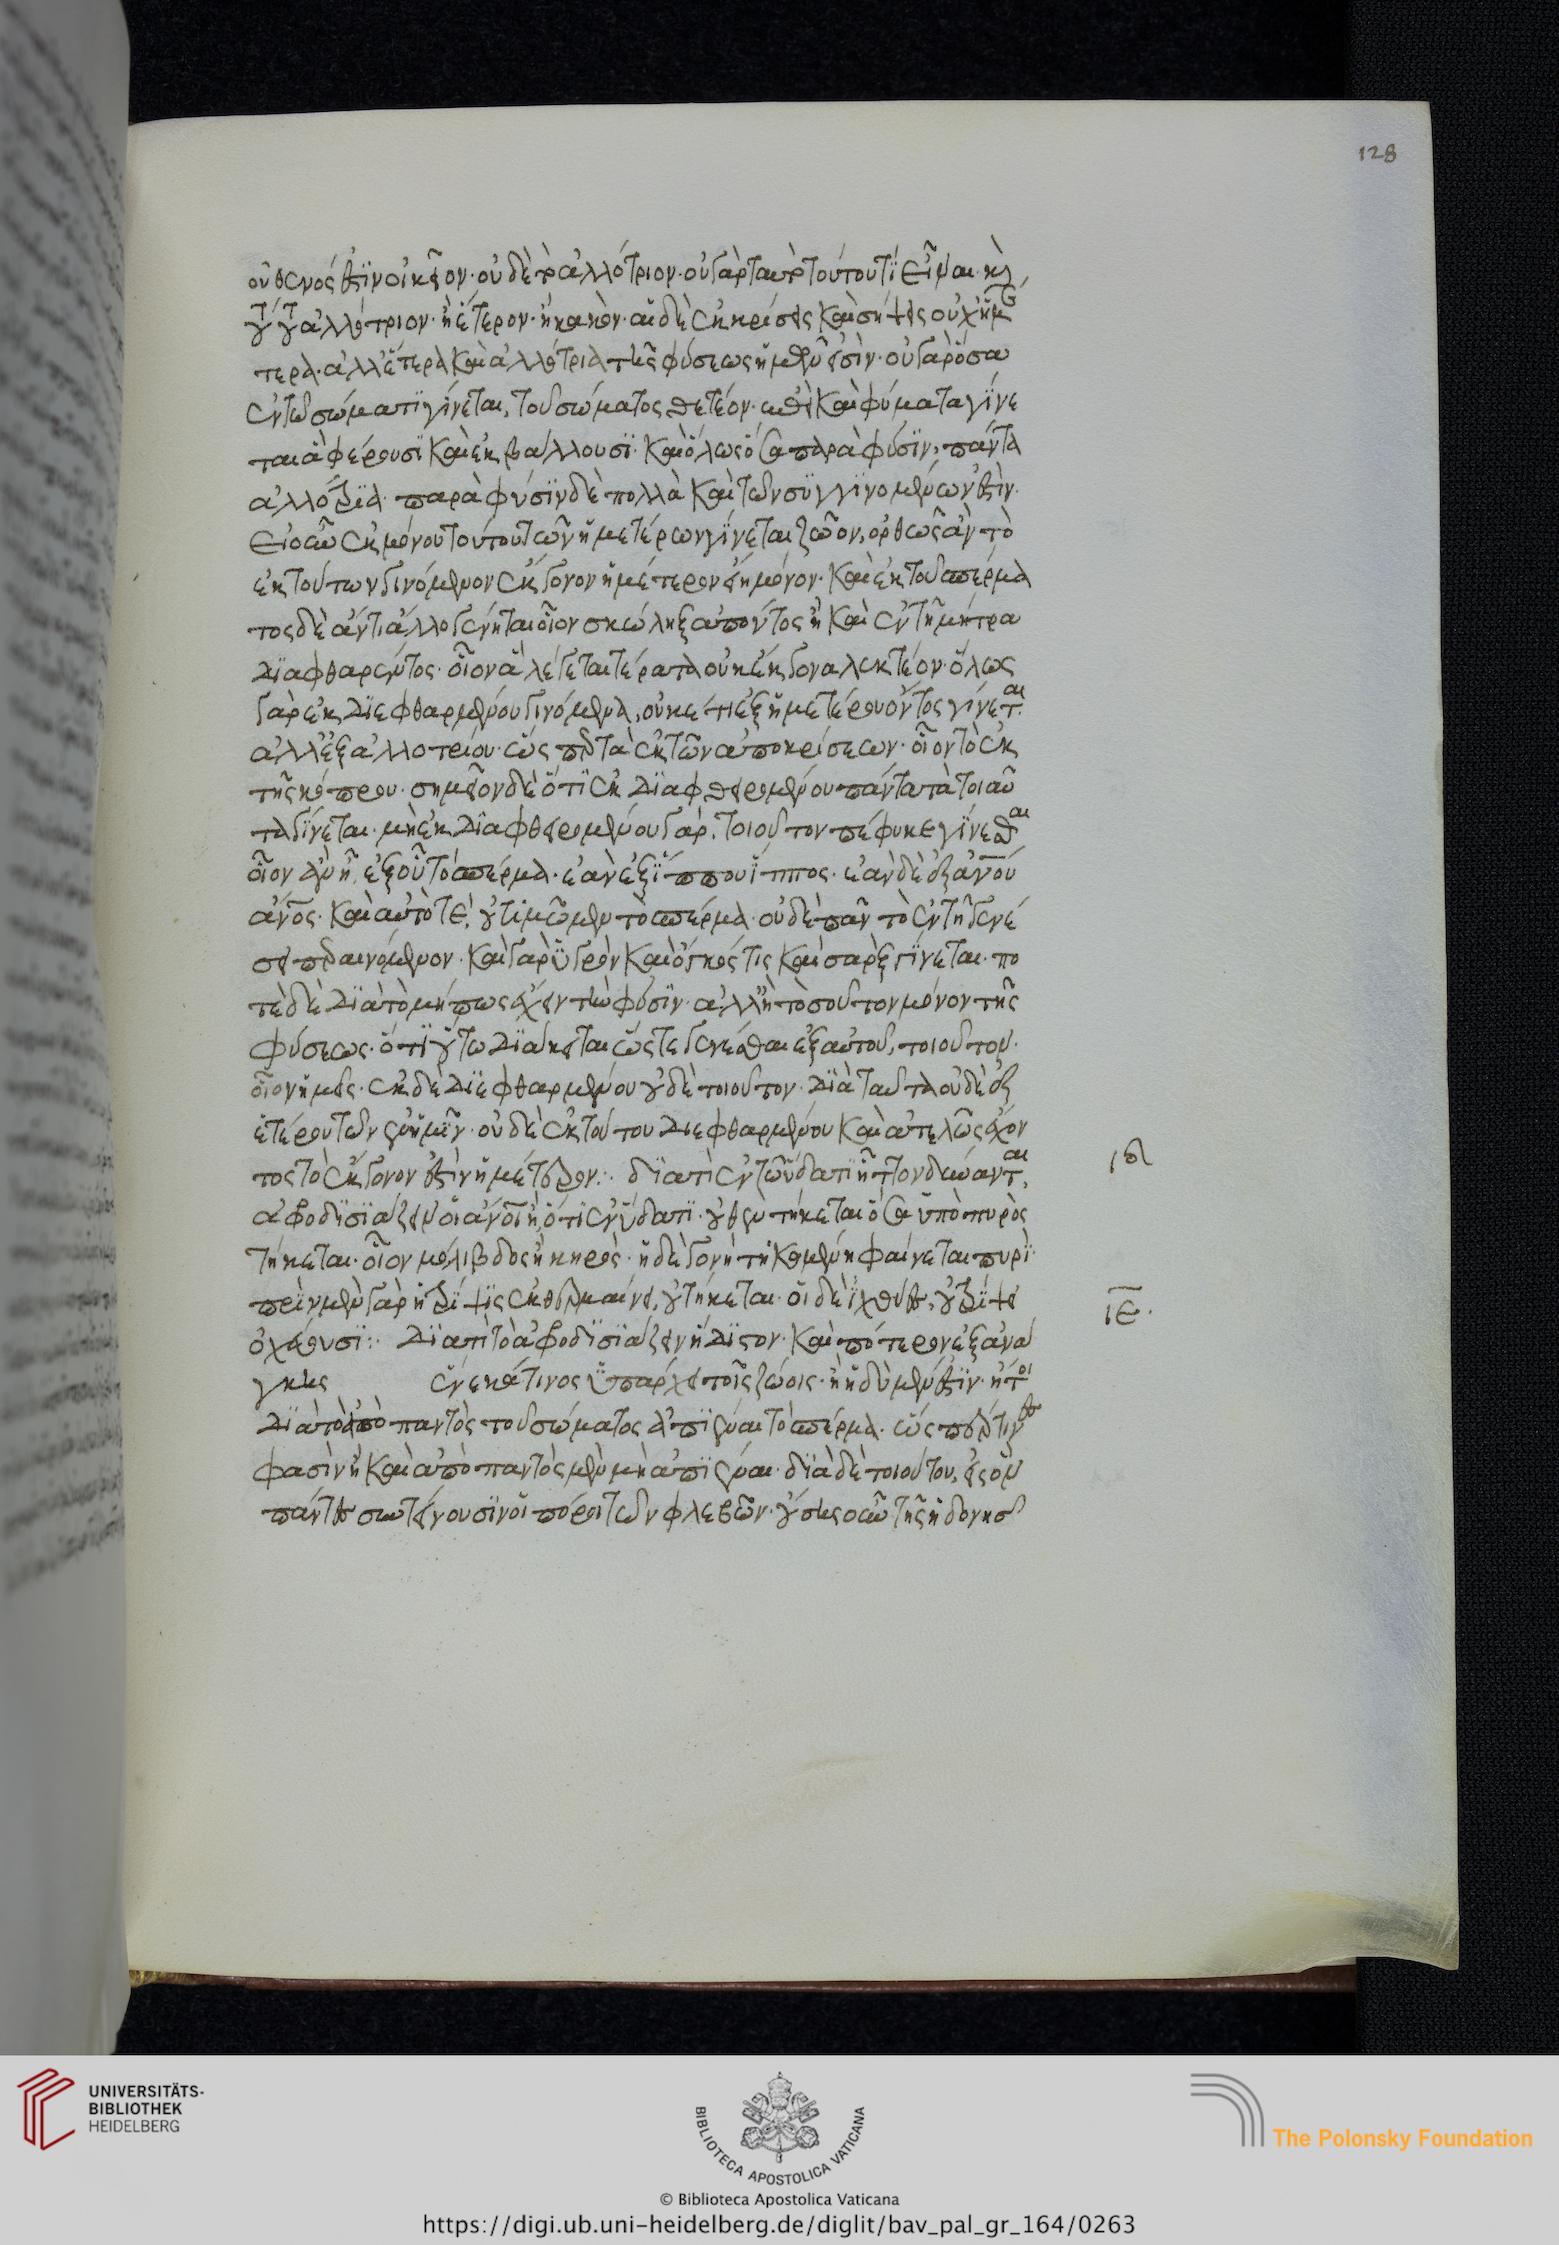 128
οὐθενός ἐστϊν οἰκεῖον· οὐδὲ τὸ ἀλλότριον· οὐ γὰρ ταυτὸ τούτου τϊ εἶναι· κὶ
τούτου ἀλλότριον· ἢ ἕτερον· ἢ κακὸν· αἱ δὲ ἐκκρίσεις καὶ σήψεις οὐχ ἡμέ
τερα· ἀλλ' ἕτερα καὶ ἀλλότρια τῆς φύσεως ἡμῶν εἰσὶν· οὐ γὰρ ὅσα
ἐν τῶ σώματϊ γίνεται, τοῦ σώματος θετέον· ἐπεὶ καὶ φύματα γϊνε
ται ἃ φέρουσϊ καὶ ἐκβάλλουσϊ· καὶ ὅλως ὅσα παρὰ φύσϊν, πάντα
ἀλλότρϊα· παρὰ φύσϊν δὲ πολλὰ καὶ τῶν συγγϊνομένων ἐστϊν·
Εἰ οὖν ἐκ μόνου τούτου τῶν ἡμετέρων γϊνεται ζῶον, ὀρθῶς ἂν τὸ
ἐκ τούτων γινόμενον ἔκγονον ἡμέτερον εἴη μόνον· καὶ ἐκ τοῦ σπέρμα
τος δὲ ἄν τι ἄλλο γένηται οἷον σκώληξ σαπέντος ἢ καὶ ἐν τῆ μήτρα
διαφθαρέντος· οἷον ἃ λέγεται τέρατα οὐκ ἔκγονα λεκτέον· ὅλως
γὰρ ἐκ διεφθαρμένου γινόμενα, οὐκέτι ἐξ ἡμετέρου ὄντος γίνεται
ἀλλ' ἐξ ἀλλοτρίου· ὥσπερ τὰ ἐκ τῶν ἀποκρίσεων· οἷον τὸ ἐκ
τῆς κόπρου· σημεῖον δὲ ὅτϊ ἐκ διαφθειρομένου πάντα τὰ τοιαῦ
τα γίνεται· μὴ ἐκ διαφθειρομένου γὰρ, τοιοῦτον πέφυκε γίνεσθαι
οἷον ἂν ἦ, ἐξ οὗ τὸ σπέρμα· ἐὰν ἐξ ἵππου ἵππος· ἐὰν δὲ ἐξ ἀνου
ἀνος· καὶ αὐτὸ τὲ, οὐ τϊμῶμεν τὸ σπέρμα· οὐδὲ πᾶν τὸ ἐν τῆ γενέ
σει περαινόμενον· καὶ γὰρ ὑγρὸν καὶ ὄγκός τις καὶ σὰρξ γϊνεται· πο
τὲ δὲ διὰ τὸ μή πως ἔχειν τὴν φύσϊν· ἀλλ' ἢ τὸ σοῦτον μόνον τῆς
φύσεως· ὅτϊ οὕτω διάκειται ὥστε γενέσθαι ἐξ αὐτοῦ, τοιοῦτον·
οἷον ἡμεῖς· ἐκ δὲ διεφθαρμένου οὐδὲ τοιοῦτον· διὰ ταῦτα οὐδὲ ἐξ
ἑτέρου τῶν ἐν ἡμῖν· οὐδὲ ἐκ τούτου διεφθαρμένου καὶ ἀτελῶς ἔχον
τος τὸ ἔκγονον ἐστὶν ἡμέτερον:· διατὶ ἐν τῶ ὕδατϊ ἧττον δύνανται
ἀφροδισϊάζειν οἱ ἄνοι ἢ, ὅτϊ ἐν ὕδατϊ· οὐθεν τήκεται ὅσα ὑπὸ πυρὸς
τήκεται· οἷον μόλιβδος ἢ κηρὸς· ἡ δὲ γονὴ τηκομένη φαίνεται πυρϊ·
πρὶν μὲν γὰρ ἡ τρίψϊς ἐκθερμαίνει, οὐ τήκεται· οἱ δὲ ἰχθύες, οὐ τρίψει
ὀχεύουσϊ:· διατὶ τὸ ἀφροδισϊάζειν ἥδϊστον· καὶ πότερον ἐξ ἀνάγ
γκης ἕνεκά τινος ὑπάρχει τοῖς ζώοις· ἢ ἡδὺ μέν ἐστϊν· ἤτοι
διὰ τὸ ἀπὸ παντὸς τοῦ σώματος ἀπϊέναι τὸ σπέρμα· ὥσπερ τινὲς
φασὶν ἢ καὶ ἀπὸ παντὸς μὲν μὴ ἀπϊέναι· διὰ δὲ τοιούτου, εἰς ὃν
πάντες συντείνουσϊν οἱ πόροι τῶν φλεβῶν· οὔσης οὖν τῆς ἡδονῆς
ιδ
ιε·
UNIVERSITÄTS-
BIBLIOTHEK
HEIDELBERG
BIBLIOTECA APOSTOLICA VATICANA
The Polonsky Foundation
© Biblioteca Apostolica Vaticana
https://digi.ub.uni-heidelberg.de/diglit/bav_pal_gr_164/0263